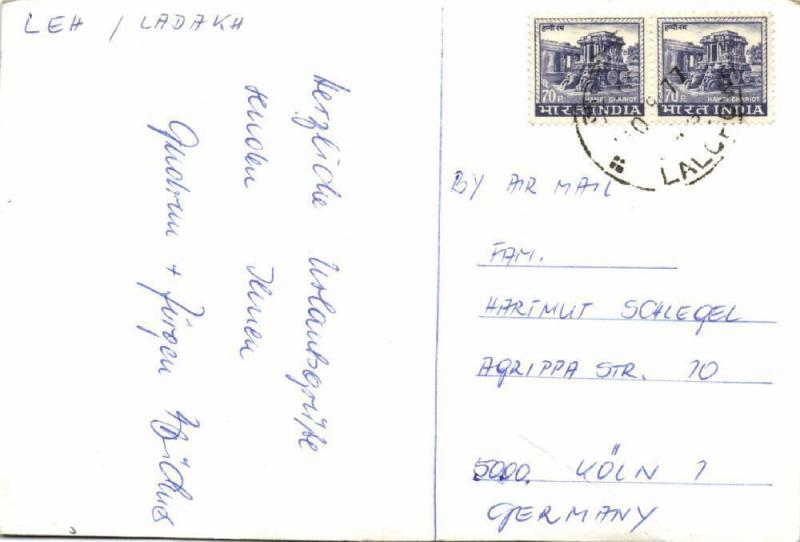 LEH / LADAKH
Herzliche Urlaubsgrüße
senden Ihnen
Gudrun + Jürgen
हम्पी रथ
70 P.
HAMPI CHARIOT
भारत INDIA
हम्पी रथ
70 P.
HAMPI CHARIOT
भारत INDIA
BY AIR MAIL
FAM.
HARTMUT SCHLEGEL
AGRIPPA STR. 10
5000 KÖLN 1
GERMANY